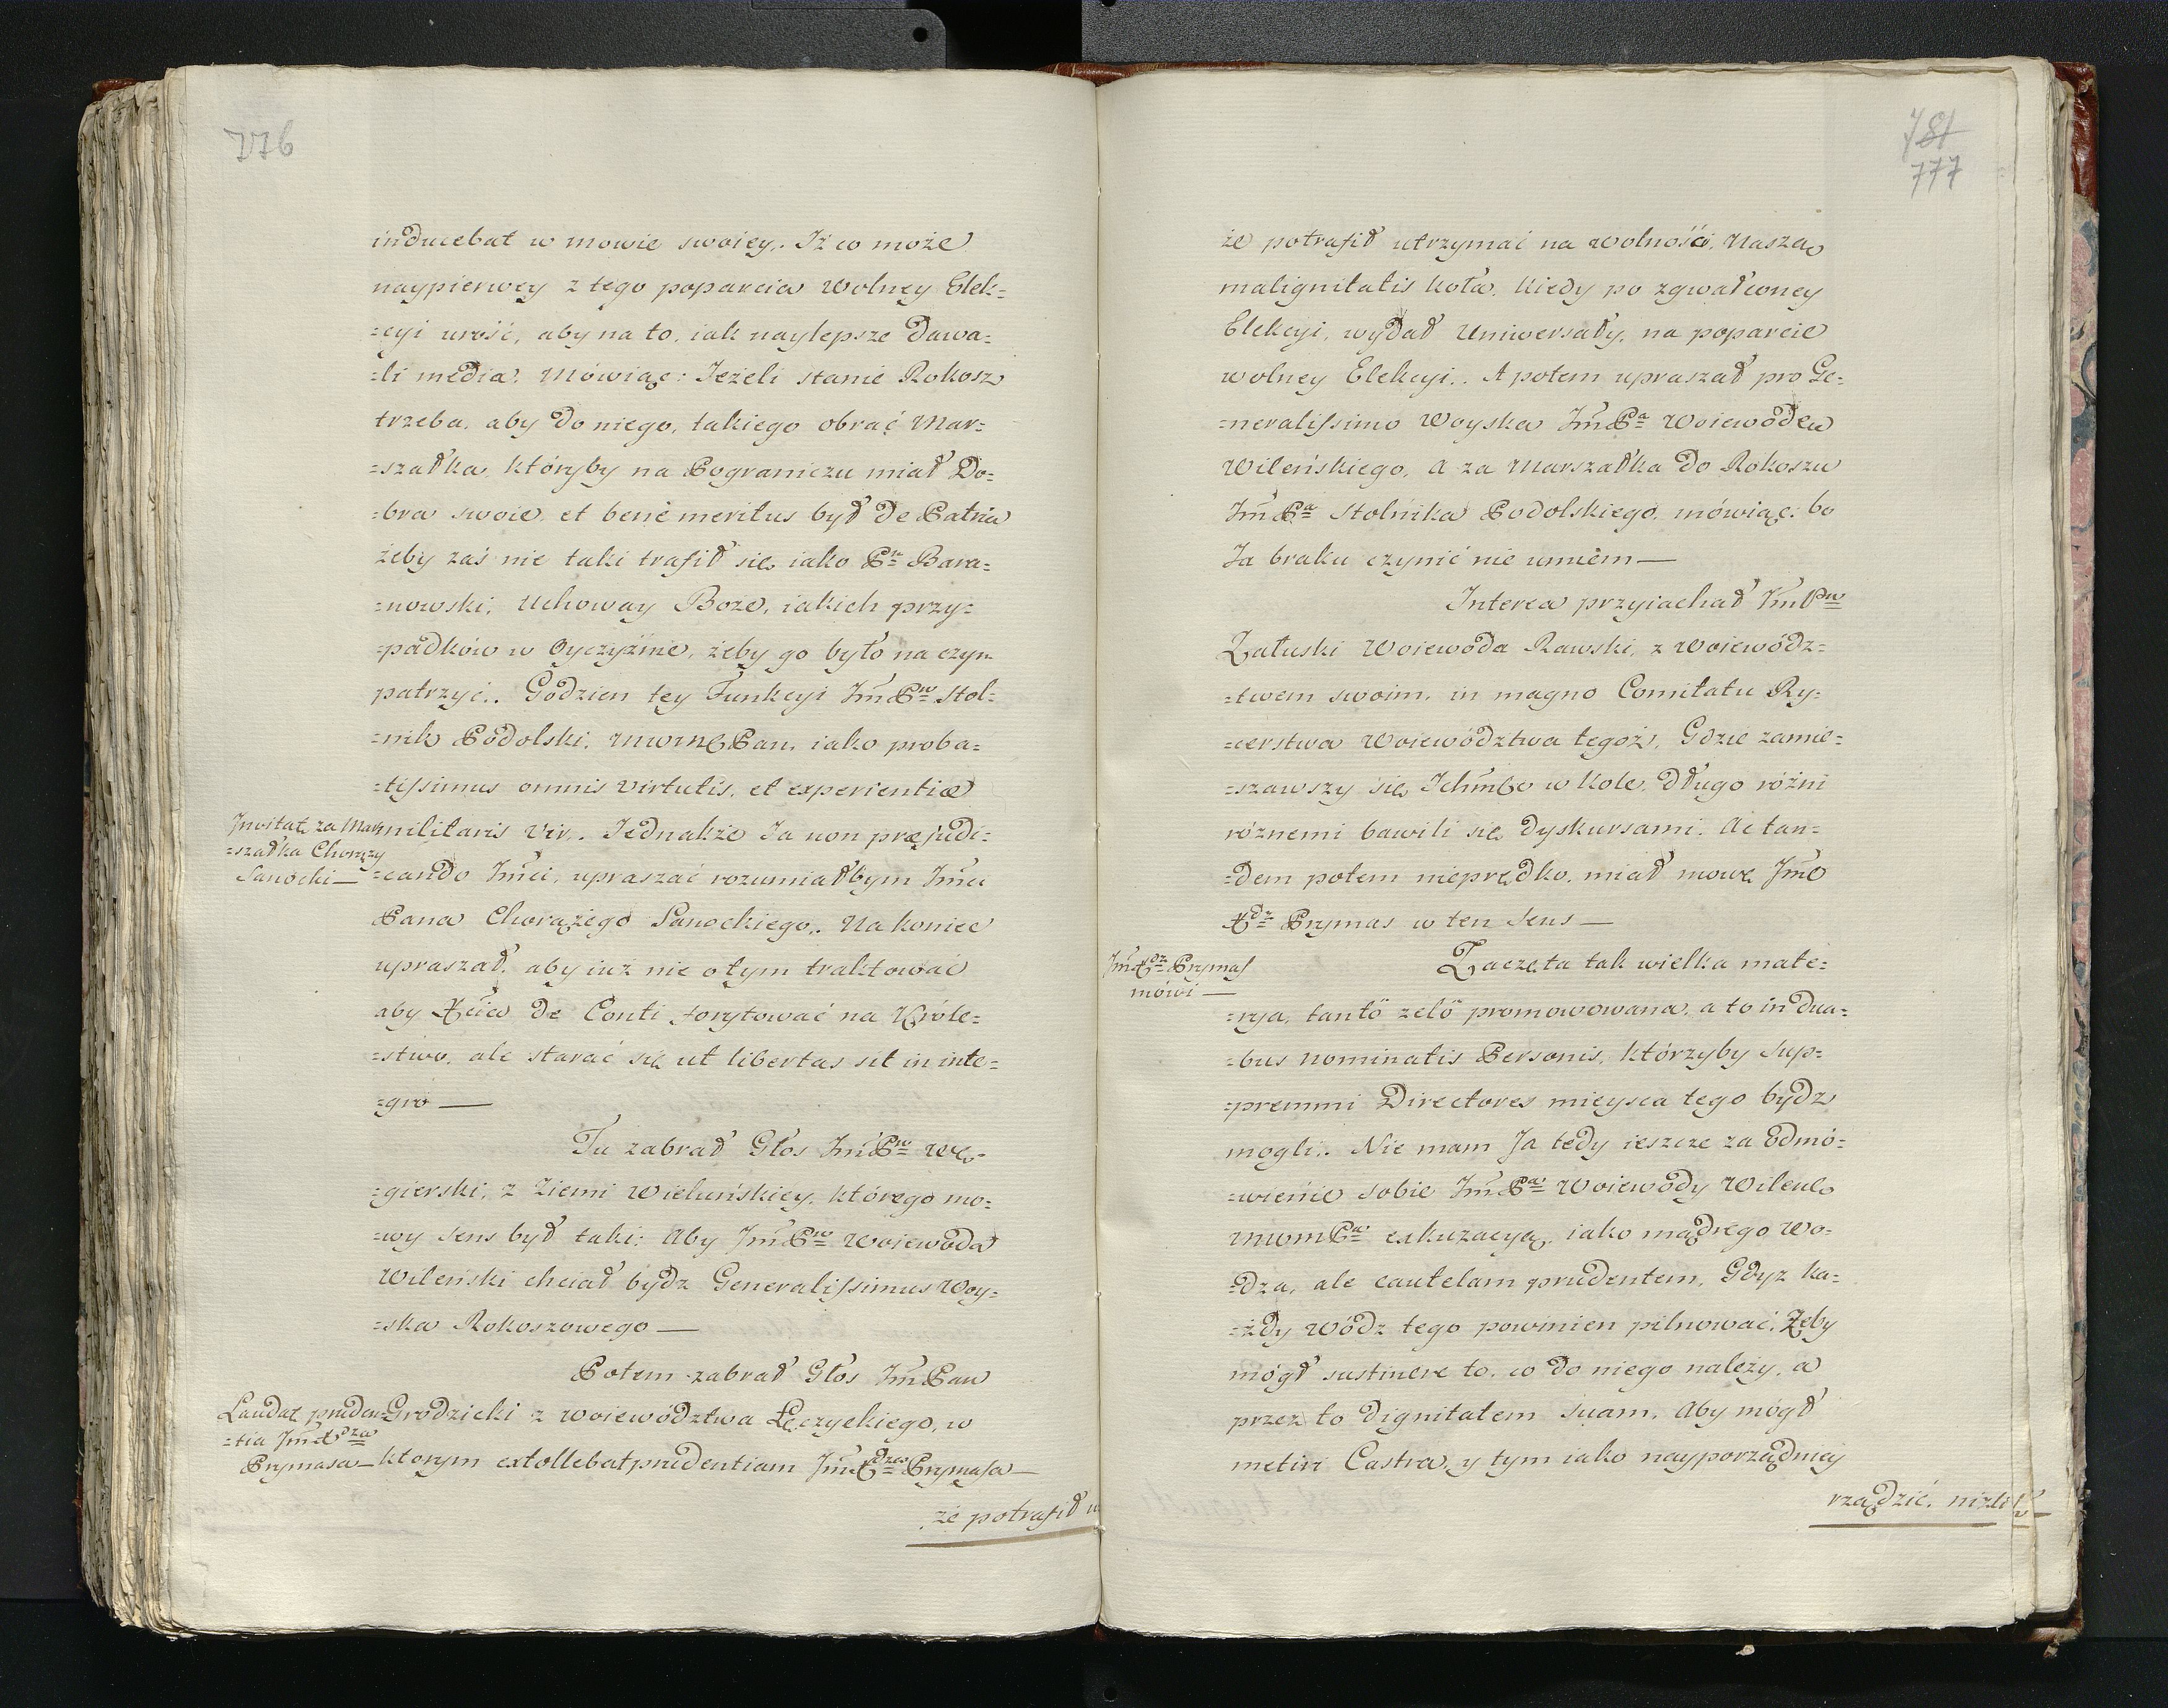 776
inducebat w mowie swoiey. Iż co może
naypierwey z tego poparcia Wolney Elek=
=cyi urość, aby na to, iak naylepsze dawa=
=li media. Mówiąc: Jeżeli stanie Rokosz
trzeba, aby do niego, takiego obrać Mar=
=szałka, któryby na Pograniczu miał Do=
=bra swoie, et bené meritus był de Patria
żeby zaś nie taki trafił się, iako Pn Bara=
=nowski. Uchoway Boże, iakich przy=
=padków w Oyczyźnie, żeby go było na czym
patrzyć. Godzien tey Funkcyi Jm̃Pn Stol=
=nik Podolski, MWMPPan, iako proba=
=tissimus omnis Virtutis, et experientiæ
Invitat za Mar=
=szałka Chorąży
Sanocki—
militaris Vir. Jednakże Ja non præjudi=
=cando Jm̃ci, upraszać rozumiałbym Jm̃ci
Pana Chorążego Sanockiego. Na koniec
upraszał, aby iuż nie o tym traktować
aby Xcia de Conti forytować na Króle=
=stwo, ale starać się ut libertas sit in inte=
=gro—
Tu zabrał Głos Jm̃Pn Wę=
=gierski, z Ziemi Wieluńskiey, którego mo=
=wy sens był taki: Aby Jm̃Pn Woiewoda
Wileński chciał bydz Generalissimus Woy=
=ska Rokoszowego—
Potem zabrał Głos Jm̃Pan
Laudat pruden=
=tia Jm̃Xdza
Prymasa—
Grodzicki z Woiewództwa Łęczyckiego, w
ktorym extollebat prudentiam Jm̃Xdza Prymasa—
że potrafił u
781
777
że potrafił utrzymać na wolności, Nasza
malignitatis koła. Kiedy po zgwałconey
Elekcyi, wydał Uniwersały, na poparcie
wolney Elekcyi. A potem upraszał pro Ge=
=neralissimo Woyska Jm̃Pa Woiewodea
Wileńskiego, a za Marszałka do Rokoszu
Jm̃Pa Stolnika Podolskiego, mówiąc: bo
Ja braku czynić nie umiem—
Interea przyiachał Jm̃Pn
Załuski Woiewoda Rawski, z Woiewódz=
=twem swoim, in magno Comitatu Ry=
=cerstwa Woiewództwa tegoż, Gdzie zamie=
=szawszy się Ichm̃ć w Kole, długo różni
róznemi bawili się dyskursami. Ac tan=
=dem potem nieprędko, miał mowę Jm̃
Xdz Prymas w ten Sens—
Jm̃Xdz Prymas
mówi—
Zaczęta tak wielka mate=
=rya, tantô zelô promowowana, a to in dua=
=bus nominatis Personis, którzyby Sup=
=premmi Directores mieysca tego bydz
mogli. Nie mam Ja tedy ieszcze za Odmó=
=wienie sobie Jm̃Pa Woiewody Wileńs
MWMPa exkuzacyą, iako mądrego Wo=
=dza, ale cautelam prudentem, Gdyz ka=
=żdy Wódz tego powinien pilnować, Żeby
mógł sustinere to, co do niego należy, a
przez to dignitatem suam, Aby mógł
metiri Castra, y tym iako nayporządniey
rządzić, niżeli